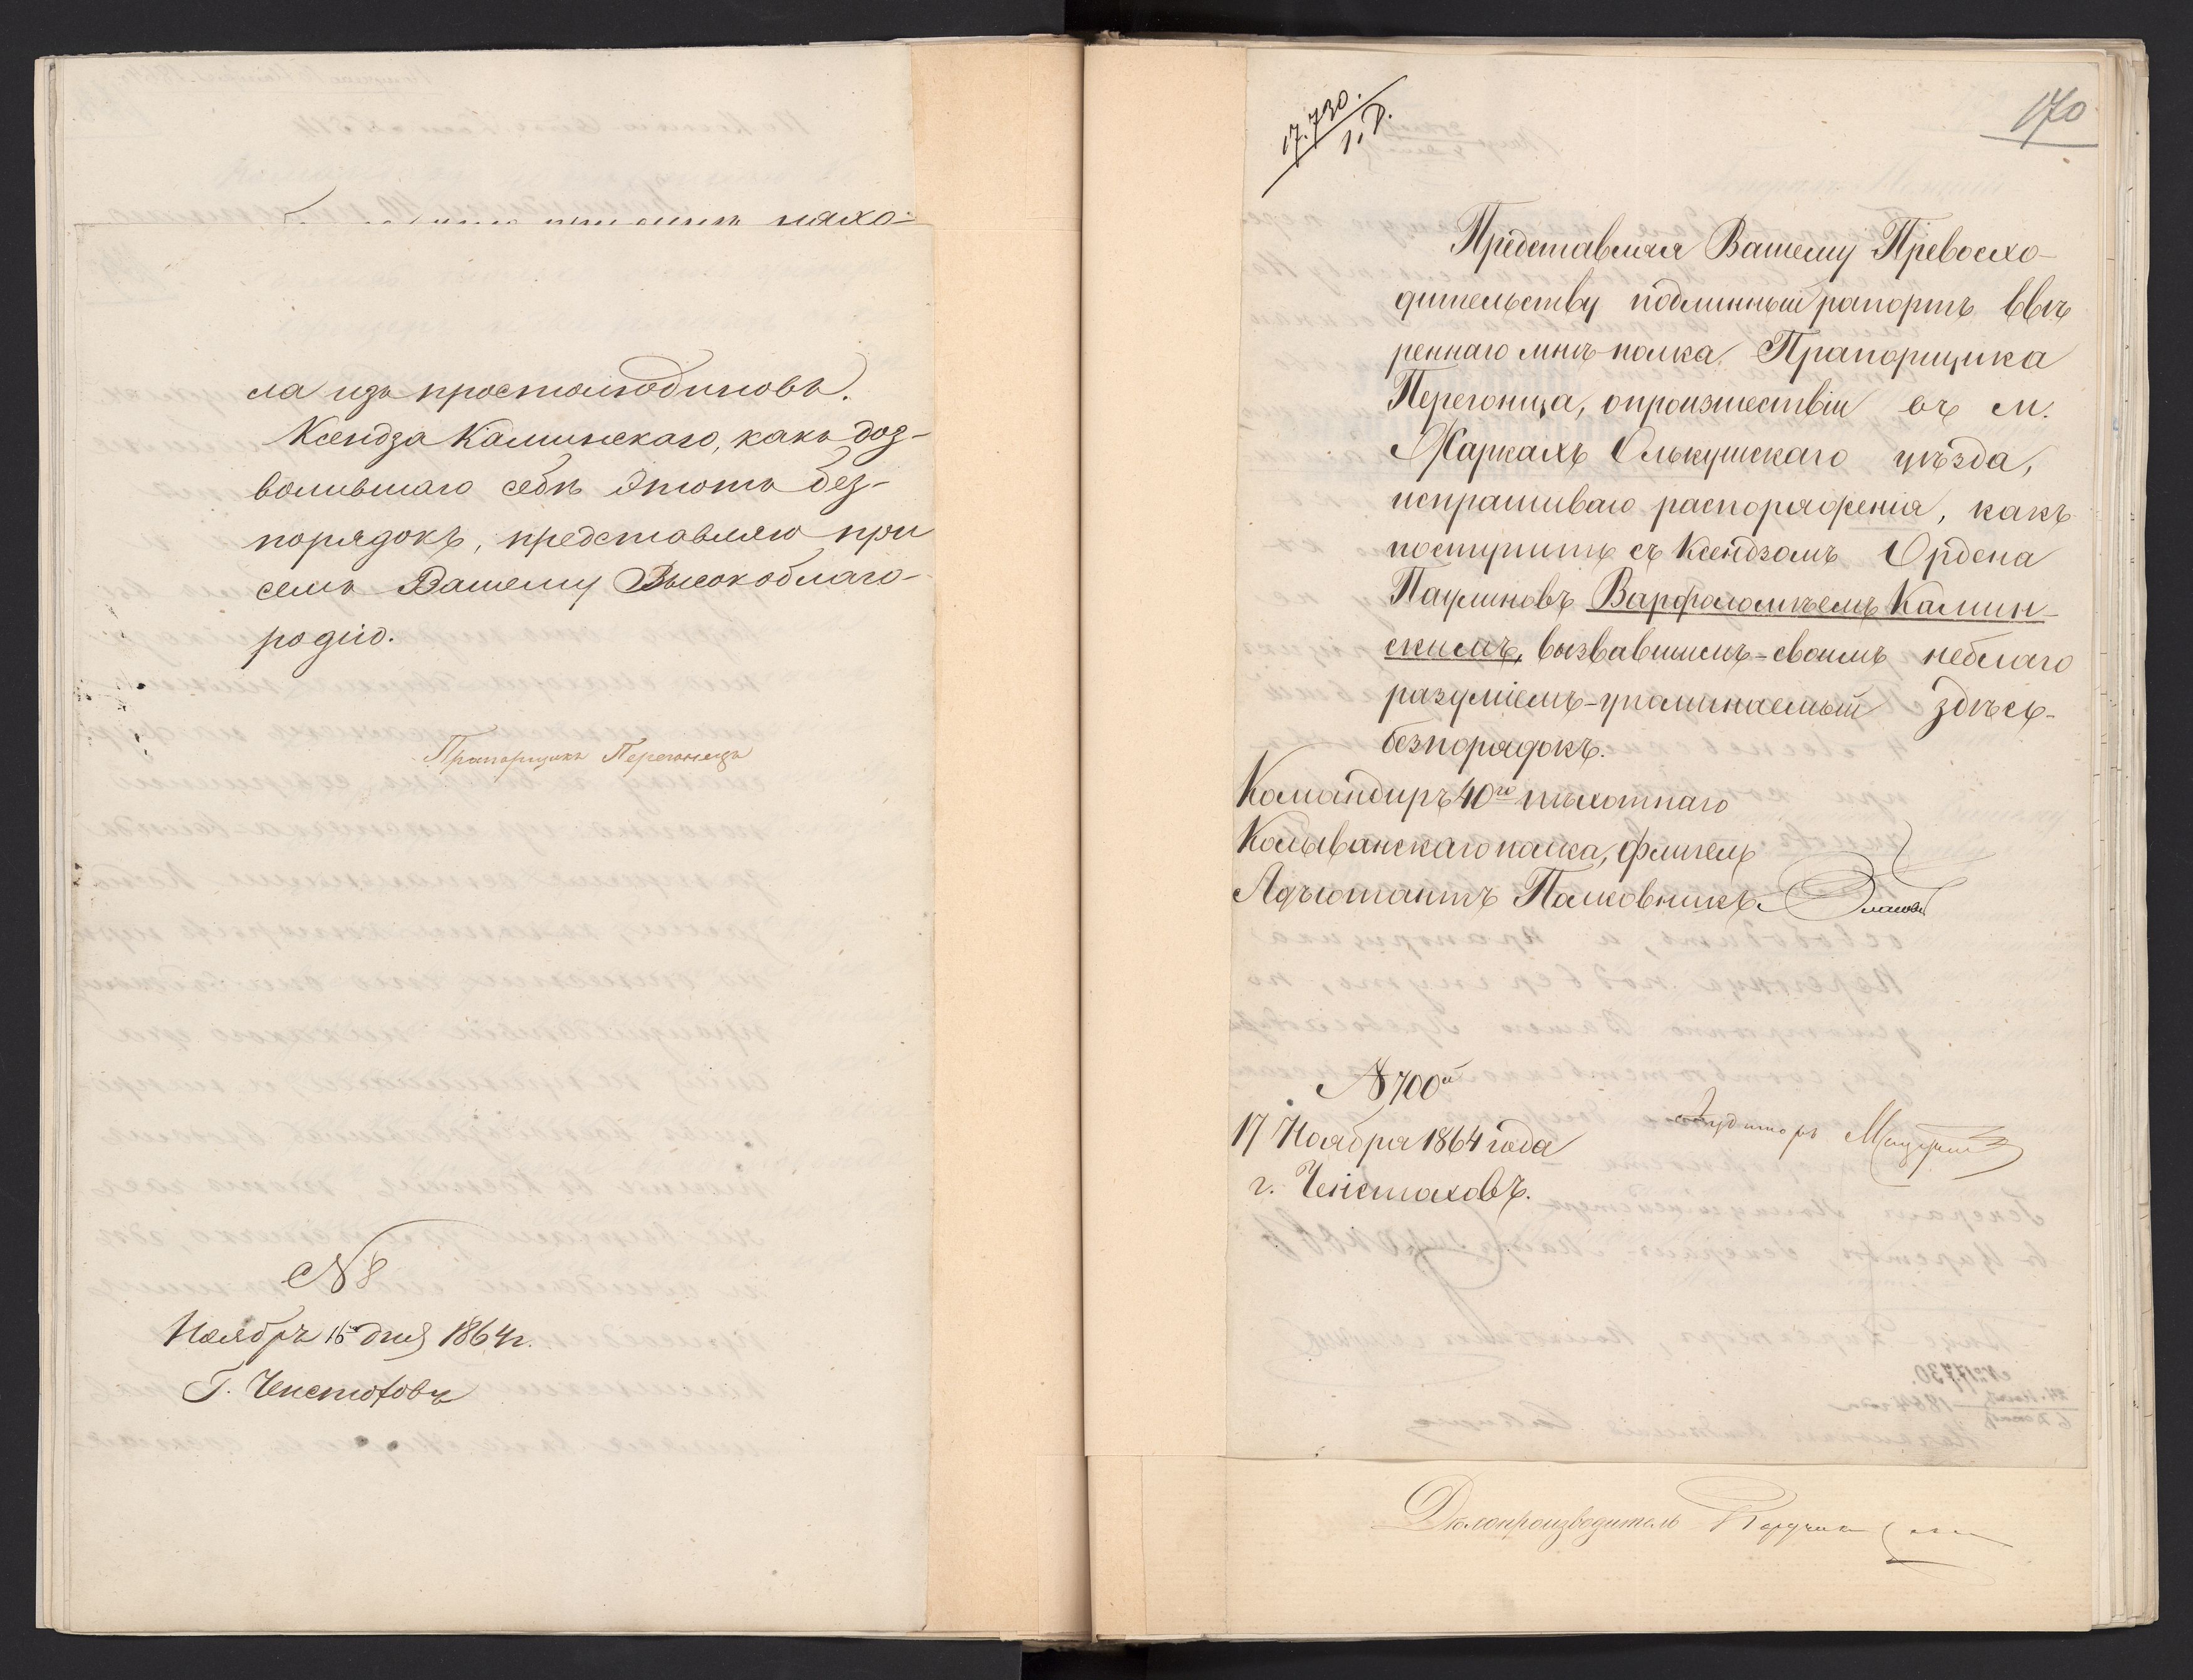 ла изъ простолюдиновъ.
Ксендза Калинскаго, какъ доз-
волившаго себѣ этотъ без-
порядокъ, представляю при
семъ Вашему Высокоблаго-
родію.
Прапорщикъ Перегонецъ
№ 8
Ноябрь 16 дня 1864 г.
Г. Ченстоховъ
17.730.
1. Р.
170
Представляя Вашему Превосхо-
дительству подлинный рапортъ ввѣ
реннаго мнѣ полка Прапорщика
Перегонца, о происшествіи въ м.
Жаркахъ Олькушскаго уѣзда,
испрашиваю распоряженія, какъ
поступить съ Ксендзомъ Ордена
Паулиновъ Варфоломѣемъ Калин-
скимъ, вызвавшимъ-своимъ неблаго
разуміемъ-упоминаемый здѣсь-
безпорядокъ.
Командиръ 40го пѣхотнаго
Колыванскаго полка, флигель
Адъютантъ Полковникъ
№ 700й
17 Ноября 1864 года
Аудиторъ
г. Ченстоховъ.
Дѣлопроизводитель Поручикъ